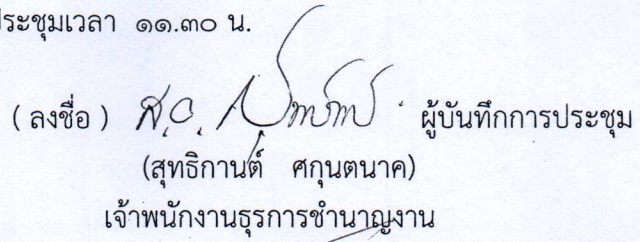 ประชุมเวลา ๑๑.๓๐ น.
( ลงชื่อ ) ส.อ. ผู้บันทึกการประชุม
(สุทธิกานต์ ศกุนตนาค)
เจ้าพนักงานธุรการชำนาญงาน